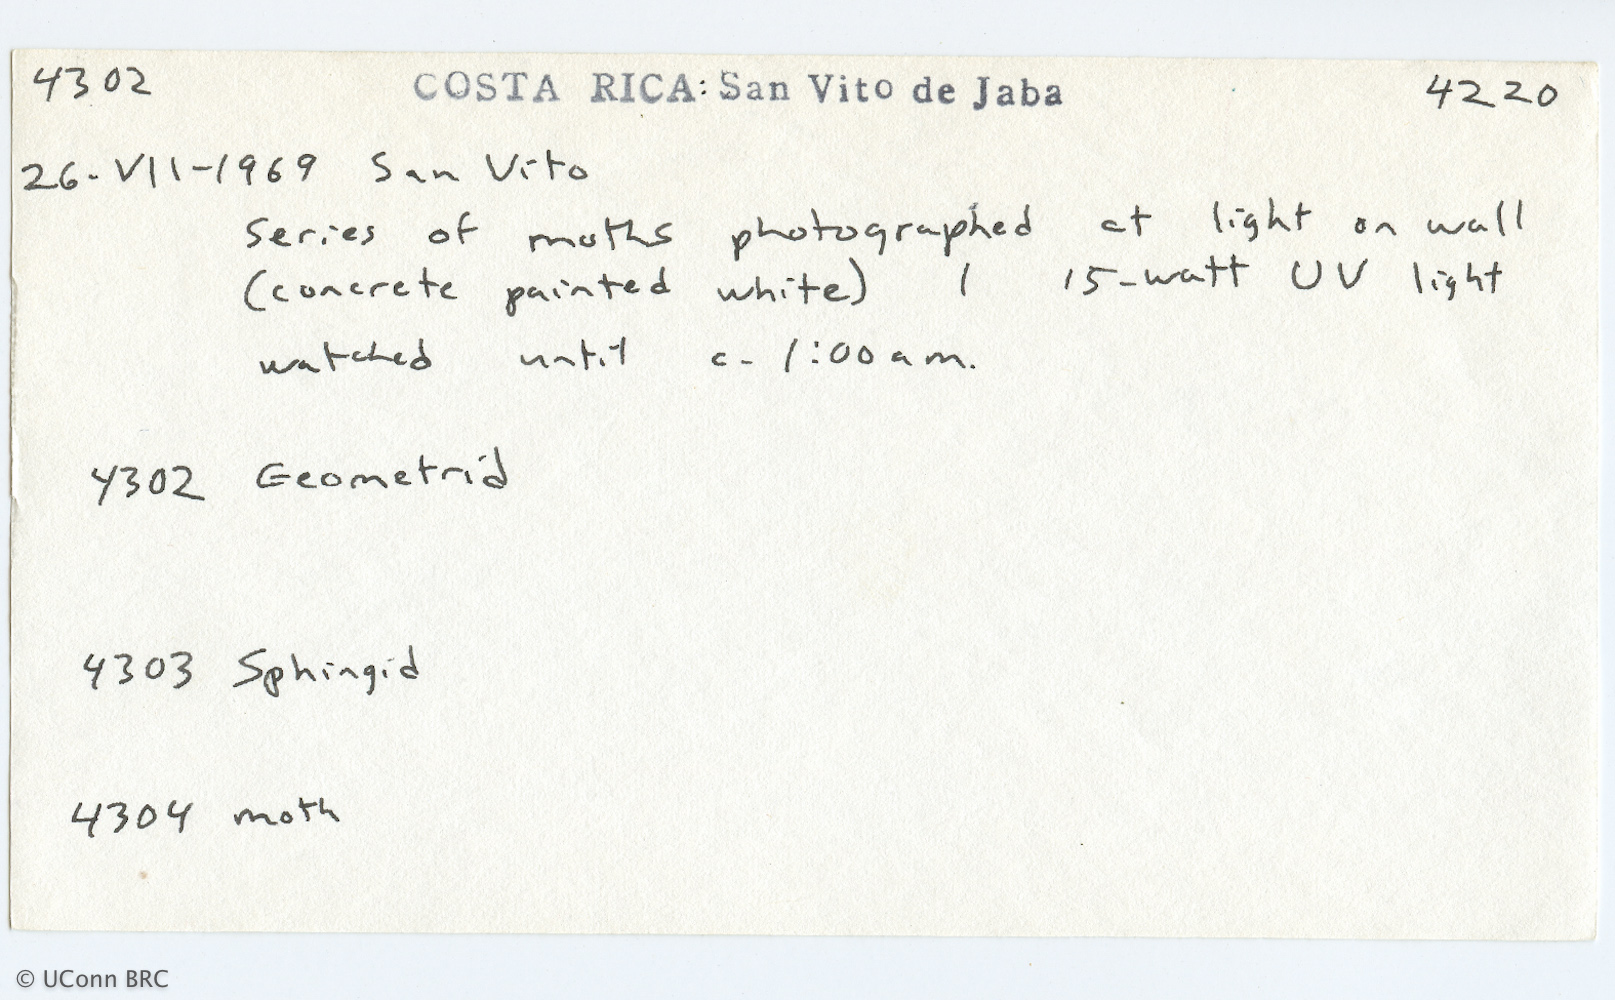 4302 COSTA RICA: San Vito de Jaba 4220
26-VII-1969 San Vito
Series of moths photographed at light on wall
(concrete painted white) 1 15-watt UV light
watched until c. 1:00 am.
4302 Geometrid
4303 Sphingid
4304 moth
© UConn BRC